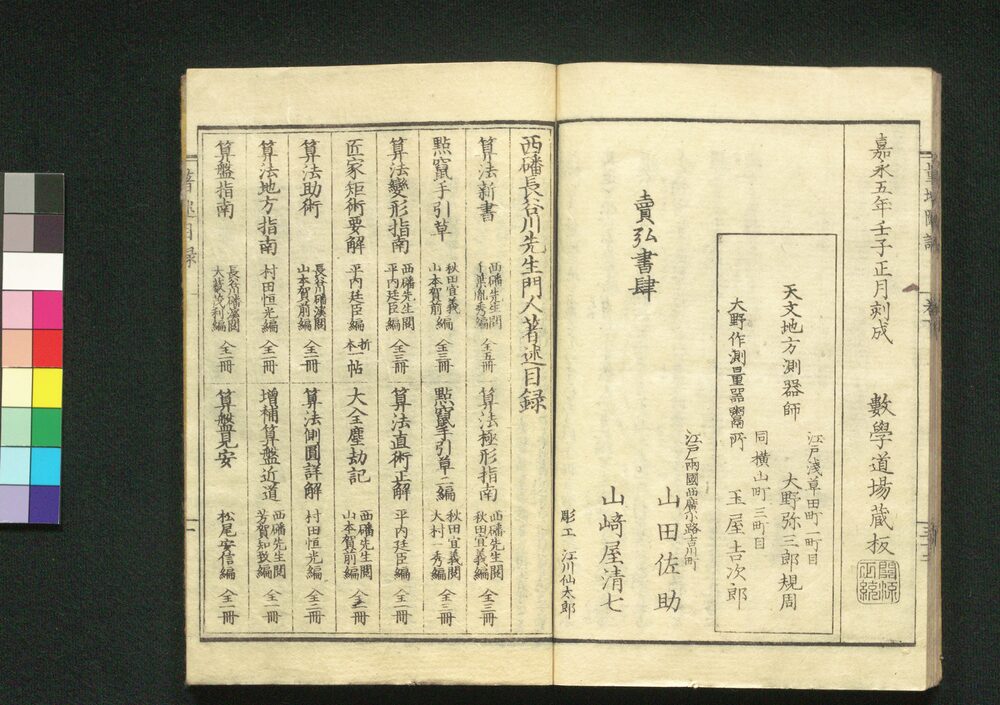 嘉永五年壬子正月刻成　數學道場蔵板
天文地方測器師
江戸淺草田町二町目
大野弥三郎規周
大野作測量器鬻所
同横山町三町目
玉屋吉次郎
賣弘書肆
江戸兩國西廣小路吉川町
山田佐助
山﨑屋清七
彫工　江川仙太郎
西磻長谷川先生門人著述目録
算法新書　西磻先生閲　千葉胤秀編　全五冊
算法極形指南　西磻先生閲　秋田宜義編　全三冊
點竄手引草　秋田宜義　山本賀前編　全三冊
點竄手引草二編　秋田宜義閲　大村一秀編　全三冊
算法變形指南　西磻先生閲　平内廷臣編　全三冊
算法直術正解　平内廷臣編　全一冊
匠家矩術要解　平内廷臣編　折本一帖
大全塵劫記　西磻先生閲　山本賀前編　全一冊
算法助術　長谷川磻溪閲　山本賀前編　全一冊
算法側圓詳解　村田恒光編　全三冊
算法地方指南　村田恒光編　全一冊
増補算盤近道　西磻先生閲　芳賀知致編　全一冊
算盤指南　長谷川磻溪閲　編　全一冊
算盤見安　松尾安信編　全一冊
著述目録